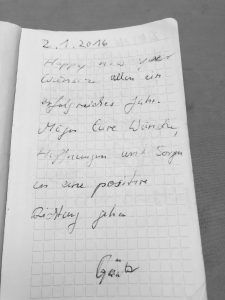 2.1.2016
Happy new year
Wünsche allen ein
erfolgreiches Jahr.
Mögen Eure Wünsche,
Hoffnungen und Sorgen
in eine positive
Richtung gehen